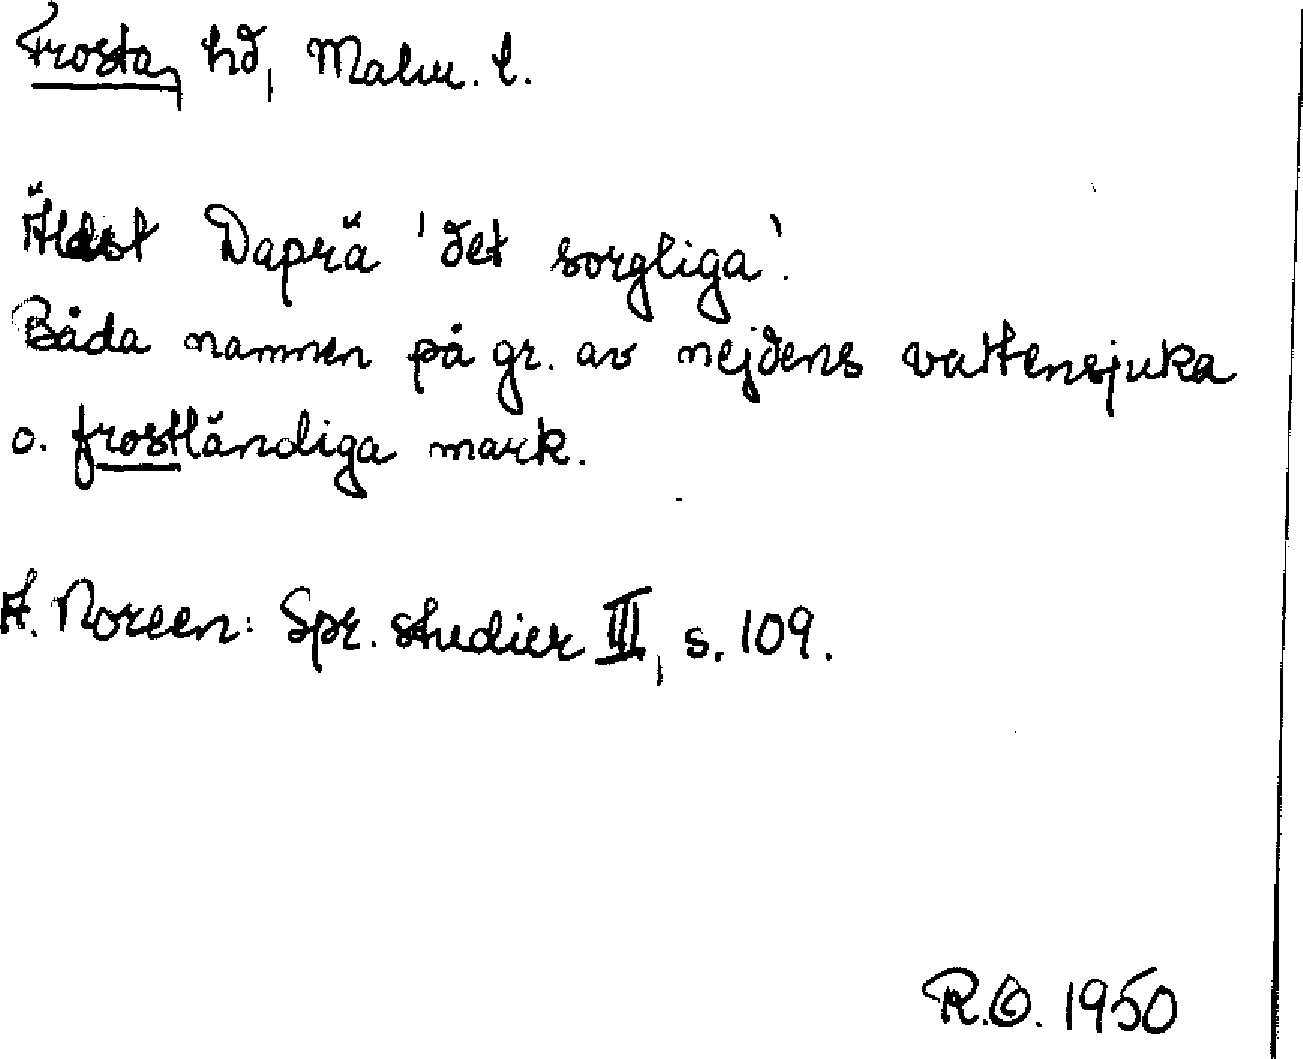 Frosta, hd, Malm. l.
Äldst Daprä 'det sorgliga'.
Båda namnen på gr. av nejdens vattensjuka
o. frostländiga mark.
A. Noreen: Spr. studier III, s. 109.
R.O. 1950